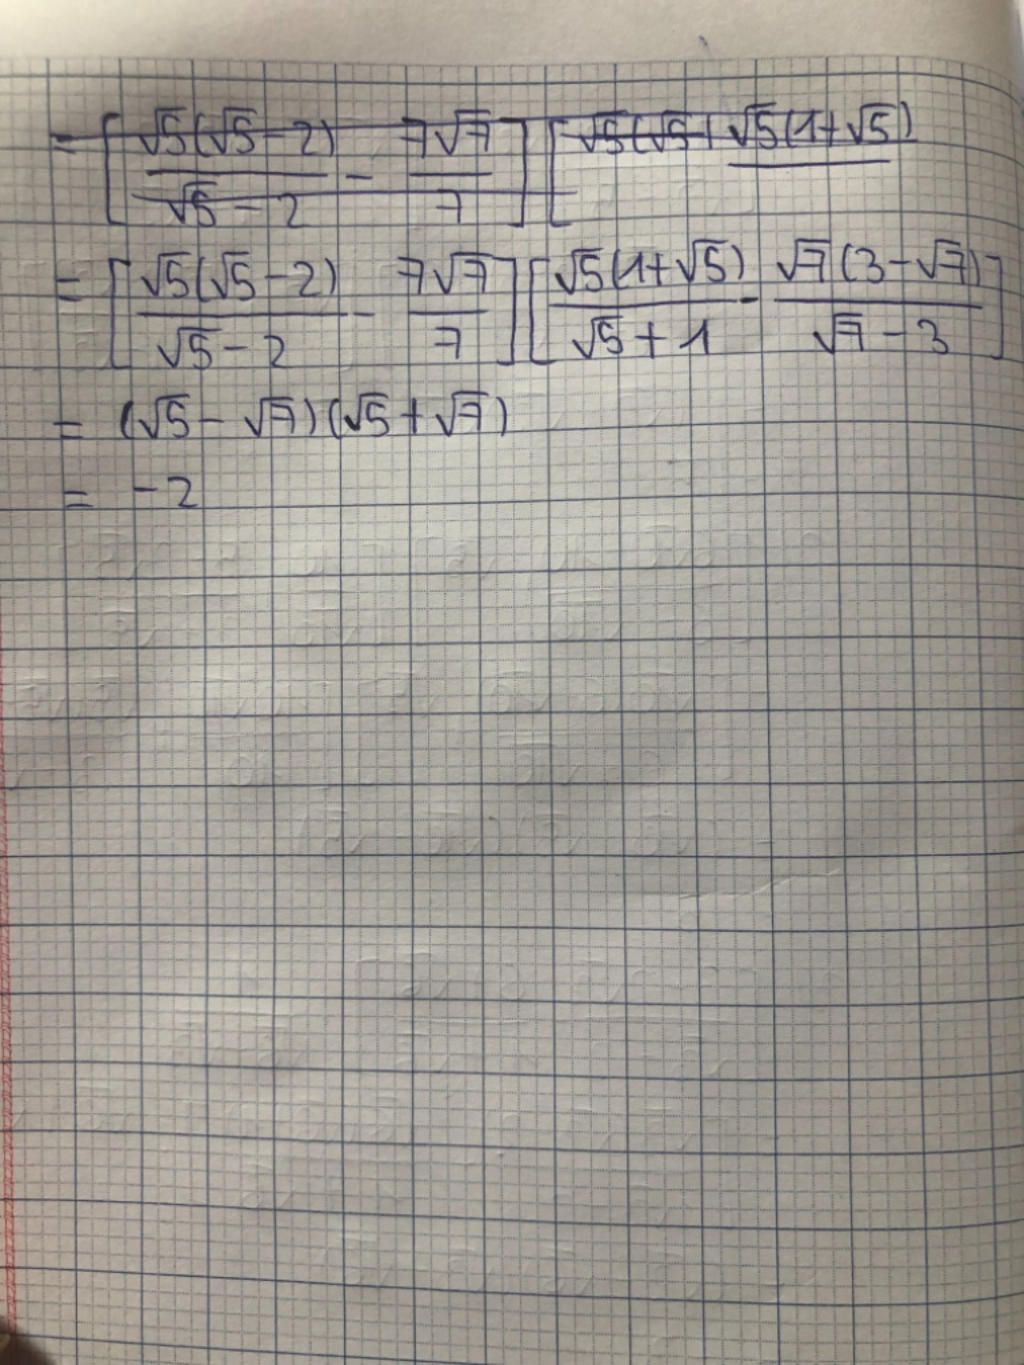 = [ √5(√5-2) / √5-2 - 7√7 / 7 ] [ √5(√5+ √5(1+√5)
= [ √5(√5-2) / √5-2 - 7√7 / 7 ] [ √5(1+√5) / √5+1 - √7(3-√7) / √7-3 ]
= (√5-√7)(√5+√7)
= -2